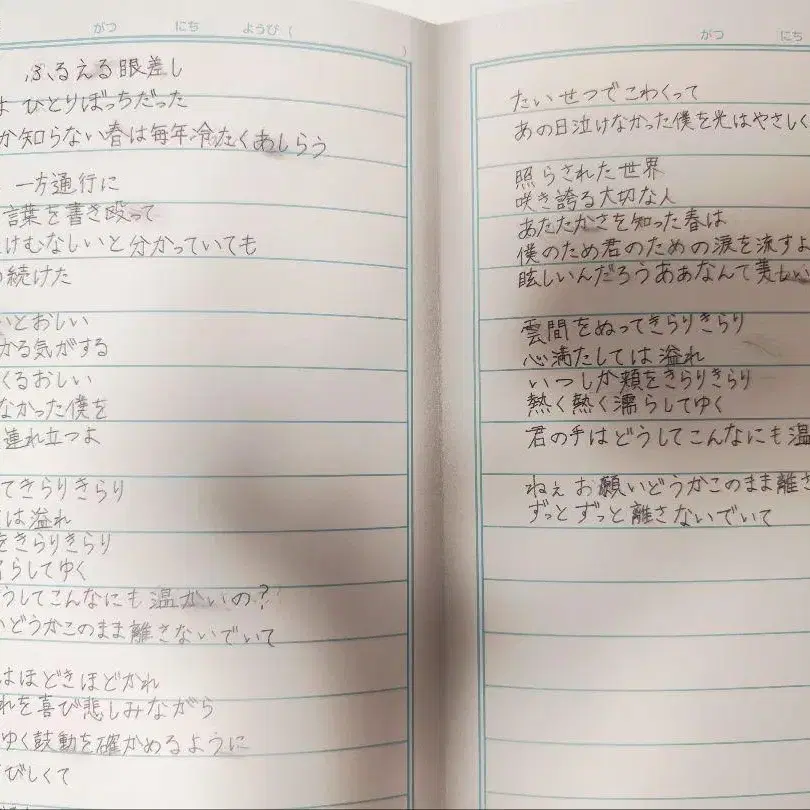 がつ にち ようび (
)
ふるえる眼差し
よ ひとりぼっちだった
か知らない春は毎年冷たくあしらう
一方通行に
言葉を書き殴って
けむなしいと分かっていても
続けた
いとおしい
かる気がする
くるおしい
なかった僕を
連れ立つよ
てきらりきらり
は溢れ
をきらりきらり
らしてゆく
うしてこんなにも温かいの?
いどうかこのまま離さないでいて
はほどきほどかれ
れを喜び悲しみながら
ゆく鼓動を確かめるように
びしくて
がつ にち
たいせつでこわくって
あの日泣けなかった僕を光はやさしく
照らされた世界
咲き誇る大切な人
あたたかさを知った春は
僕のため君のための涙を流すよ
眩しいんだろうあぁなんて美しい
雲間をぬってきらりきらり
心満たしては溢れ
いつしか頬をきらりきらり
熱く熱く濡らしてゆく
君の手はどうしてこんなにも温
ねぇお願いどうかこのまま離さ
ずっとずっと離さないでいて